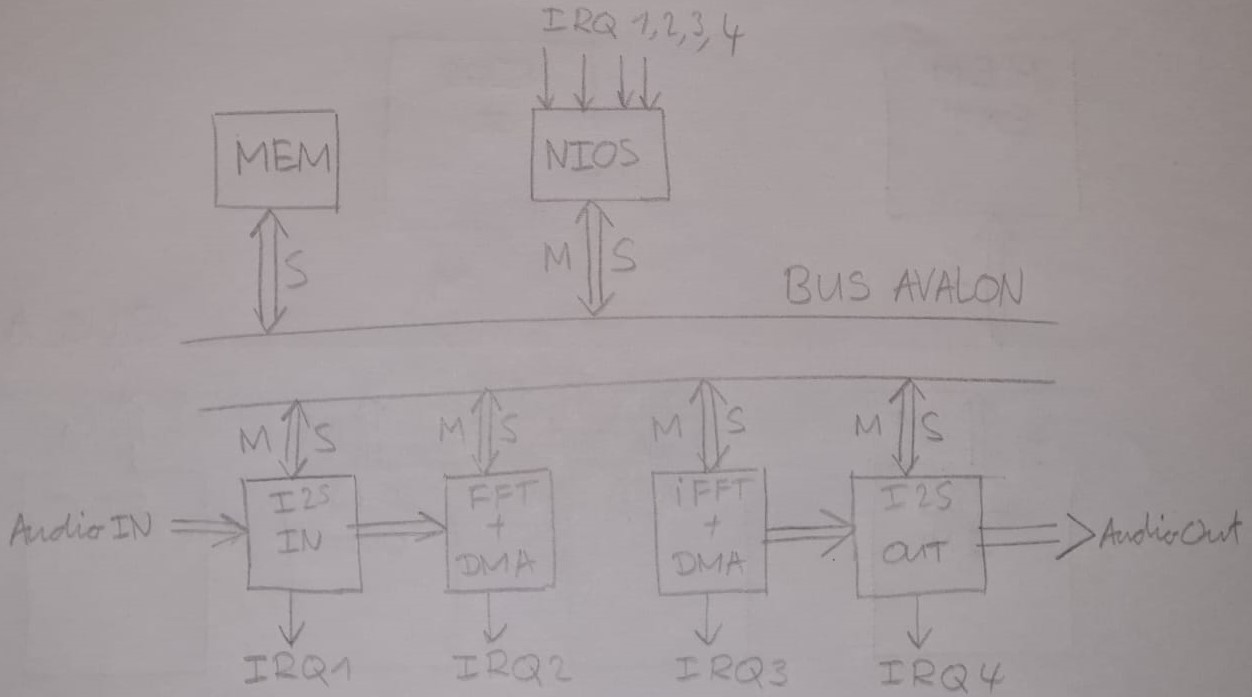 IRQ 1,2,3,4
MEM
NIOS
S
M
S
BUS AVALON
M
S
M
S
M
S
M
S
Audio IN
I2S
IN
FFT
+
DMA
iFFT
+
DMA
I2S
OUT
Audio Out
IRQ1
IRQ2
IRQ3
IRQ4